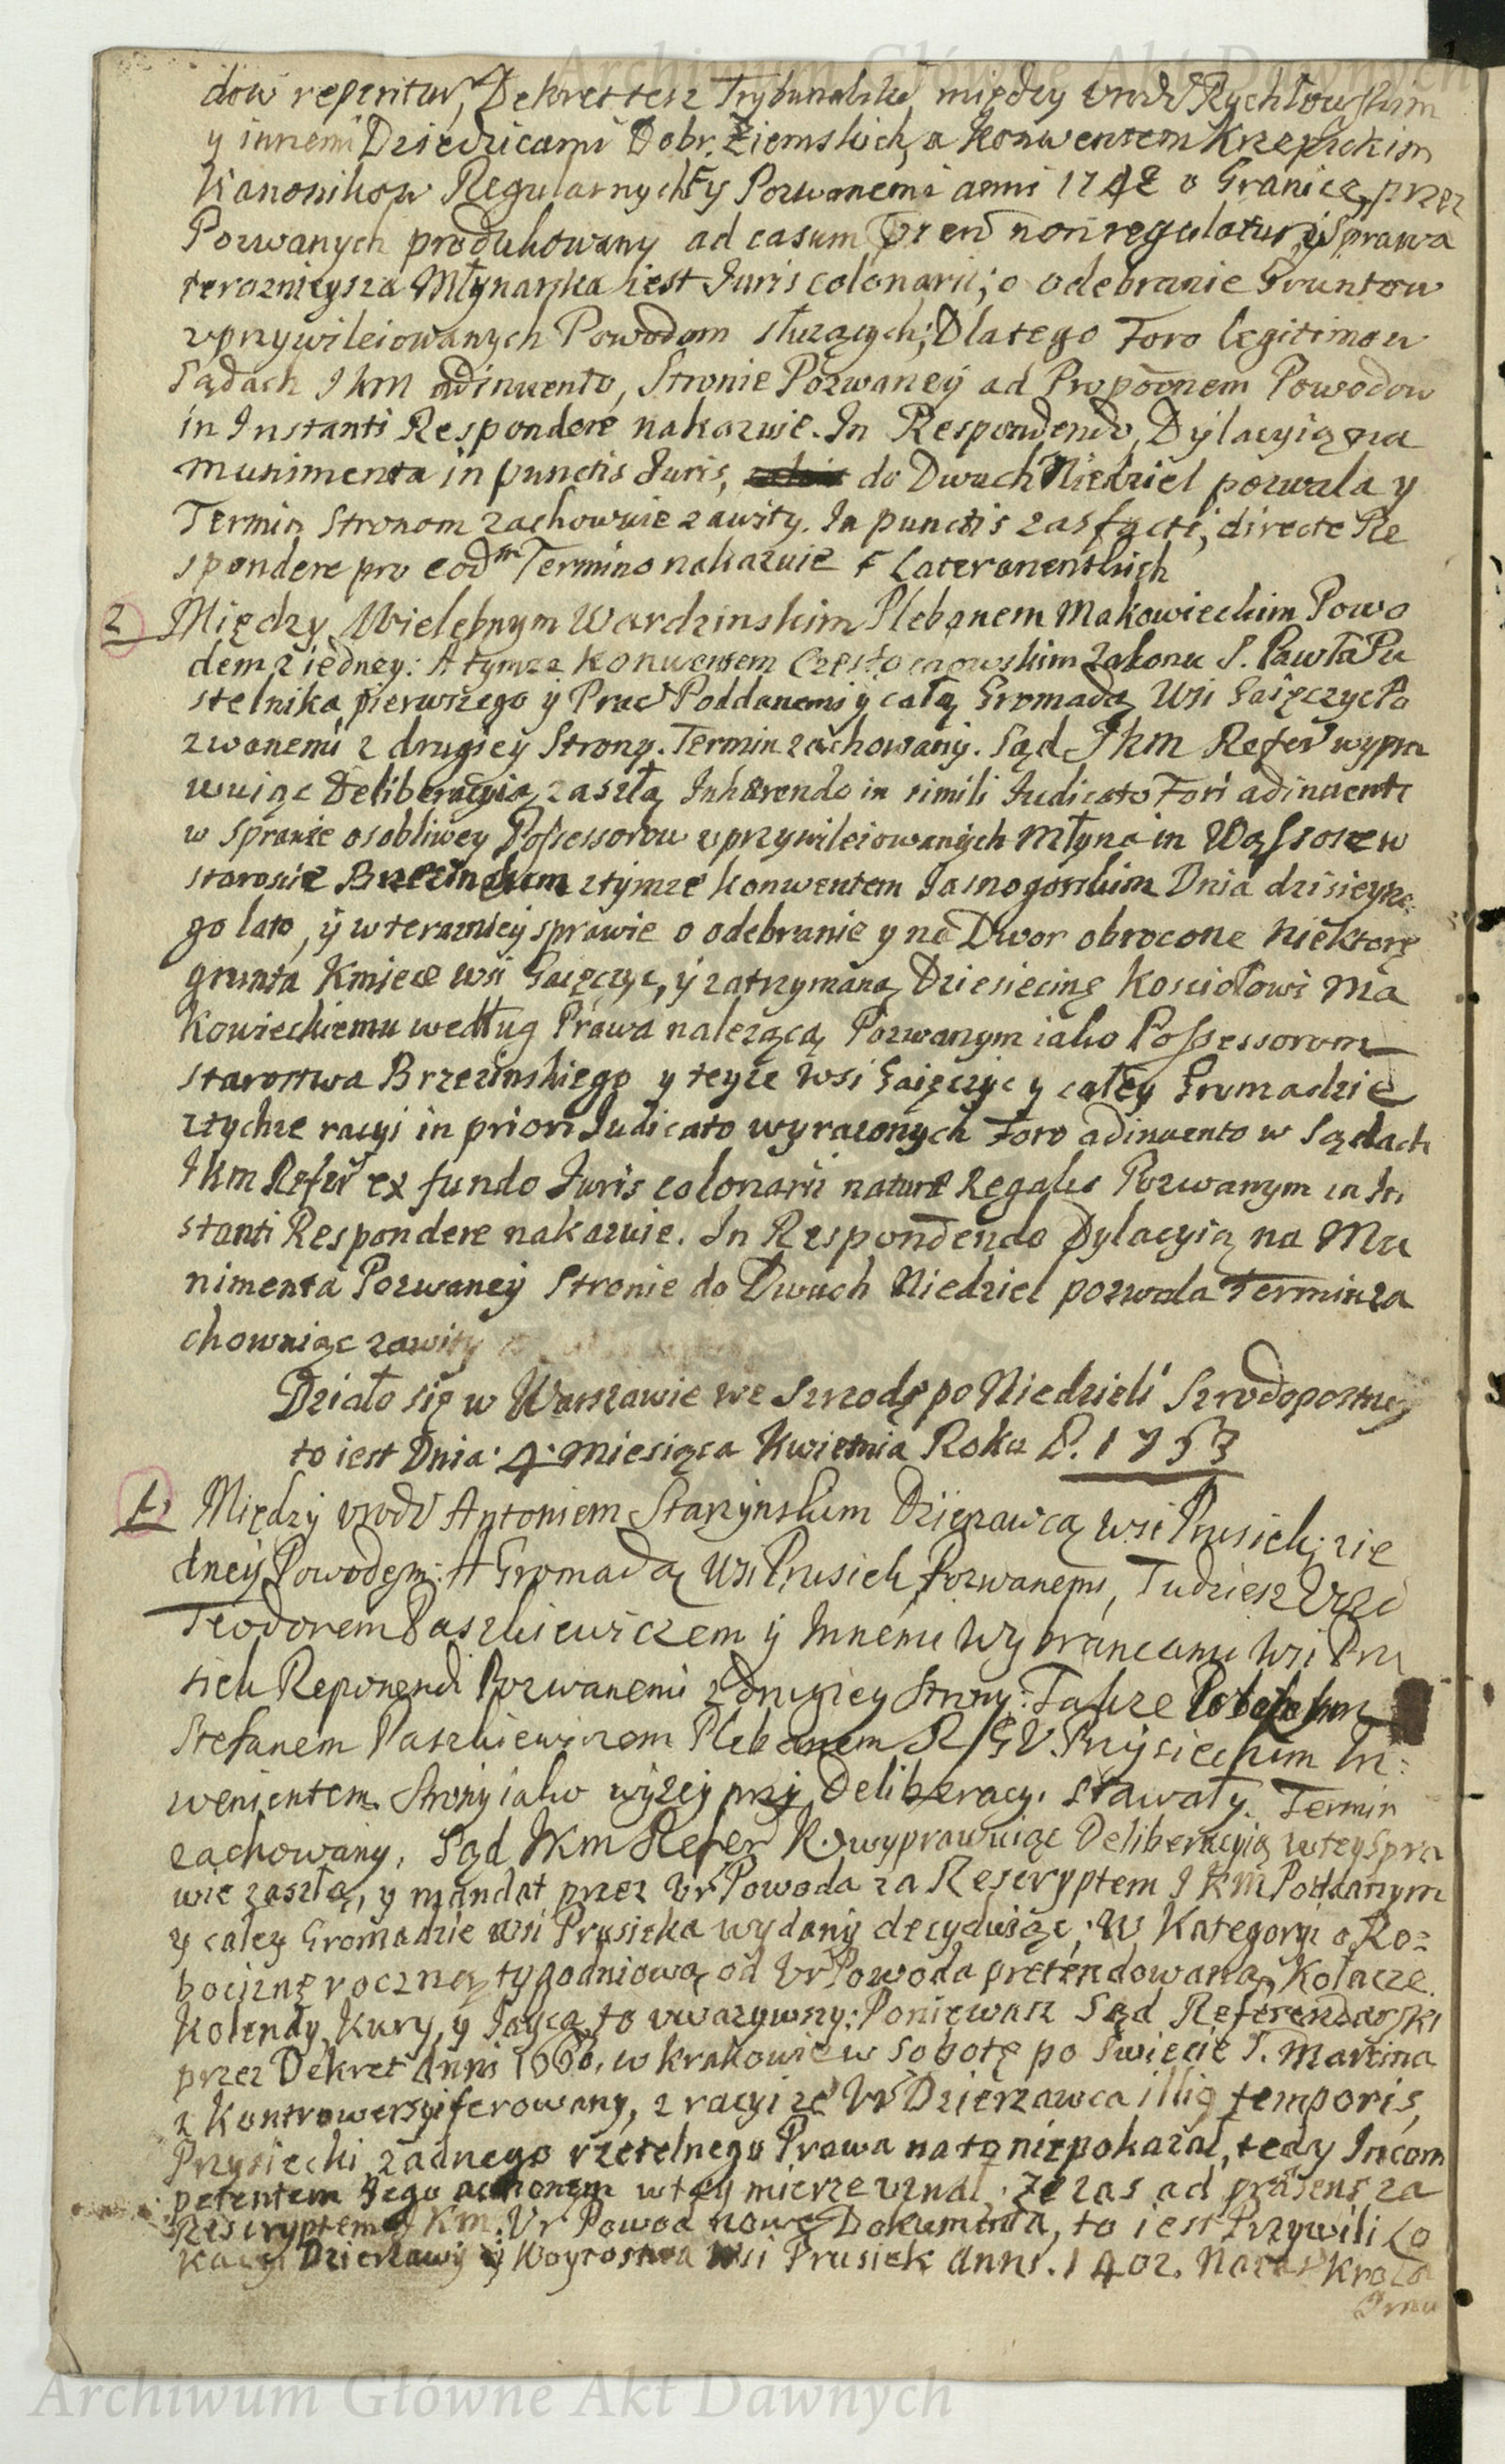 dow reperitur, Dekret tesz Trybunalski między Urodz Rychłowskim
y innemi Dziedzicami Dobr Ziemskich, a Konwentem Krzepickim
Kanonikow Regularnych y Pozwanemi anni 1748 o Granice, przez
Pozwanych produkowany ad casum non regulatur, y Sprawa
teraznieysza Młynarska iest Juris colonarii, o odebranie Gruntow
uprzywileiowanych Powodom słuzących; Dlatego Foro legitimo w
Sądach JKM adinvento, Stronie Pozwaney ad Propoonem Powodow
in Instanti Respondere nakazuie. In Respondendo, Dylacyią na
munimenta in punctis Juris, do Dwuch Niedziel pozwala y
Termin Stronom zachowuie zawity. In punctis zas facti, directe Re
spondere pro eodm Termino nakazuie Lateranenskich
2 Między Wielebnym Wardzinskim Plebanem Makowieckim Powo
dem z iedney: A tymze Konwentem Częstochowskim Zakonu S. Pawła Pu
stelnika pierwszego y Prac Poddanemi y całą Gromadą Wsi Gaięczyc Po
zwanemi z drugiey Strony. Termin zachowany. Sąd JKM Refer wypra
wuiąc Deliberacyią zaszłą Inhærendo in simili Judicato Fori adinventi
w Sprawie osobliwey Possessorow uprzywileiowanych Młyna in Wąssosze w
starostwie Brzezinskim z tymze konwentem Jasnogorskim Dnia dzisieysze:
go lato, y w terazniey sprawie o odebranie y na Dwor obrocone niektore
grunta Kmiece wsi Gaięczyc, y zatrzymaną Dziesięcinę Kosciołowi Ma
kowieckiemu według Prawa nalezącą Pozwanym iako Possessorom
starostwa Brzezinskiego y teyze wsi Gaięczyc y całey Gromadzie
z tychze racyi in priori Judicato wyrazonych Foro adinvento w Sądach
JKM Refer ex fundo Juris colonarii naturæ Regalis Pozwanym in In
stanti Respondere nakazuie. In Respondendo Dylacyią na Mu
nimenta Pozwaney Stronie do Dwuch Niedziel pozwala Termin za
chowuiąc zawity
Działo się w Warszawie we Szrodę po Niedzieli Szrodopostney
to iest Dnia 4 Miesiąca Kwietnia Roku P. 1753
1. Między Urodz Antoniem Starzynskim Dzierzawcą wsi Prusiek z ie
dney Powodem: A Gromadą Wsi Prusiek Pozwanemi, Tudziesz
Teodorem Paszkiewiczem y Innemi Wybrancami wsi Pru
siek Reponendi Pozwanemi z drugiey Strony: Takze
Stefanem Paszkiewiczem Plebanem Przysieckim In:
wenientem. Strony iako wyzey przy Deliberacyi stawały. Termin
zachowany. Sąd JKM Refer K. wyprawuiąc Deliberacyią w tey Spra
wie zaszłą, y mandat przez Ur Powoda za Reskryptem JKM Poddanym
y całey Gromadzie wsi Prusieka wydany decyduiąc; w Kategoryi o Ro=
bociznę roczną tygodniową od Ur Powoda pretendowaną, Kołacze
Kolendy Kury, y Jayca to uwazywszy: Poniewasz Sąd Referendarski
przez Dekret Anni w Krakowie w Sobotę po Swięcie S. Marcina
z Kontrowersyi ferowany, z racyi ze Ur Dzierzawca illius temporis,
Przysiecki zadnego rzetelnego Prawa na to nie pokazał, tedy Incom
petentem Jego actionem w tey mierze uznał. Ze zas ad præsens za
Reskryptem JKM. Ur Powod nowe Dokumenta, to iest Przywiley Lo
kacyi Dzierzawy y Woytostwa wsi Prusiek Anni. 1402. Krola